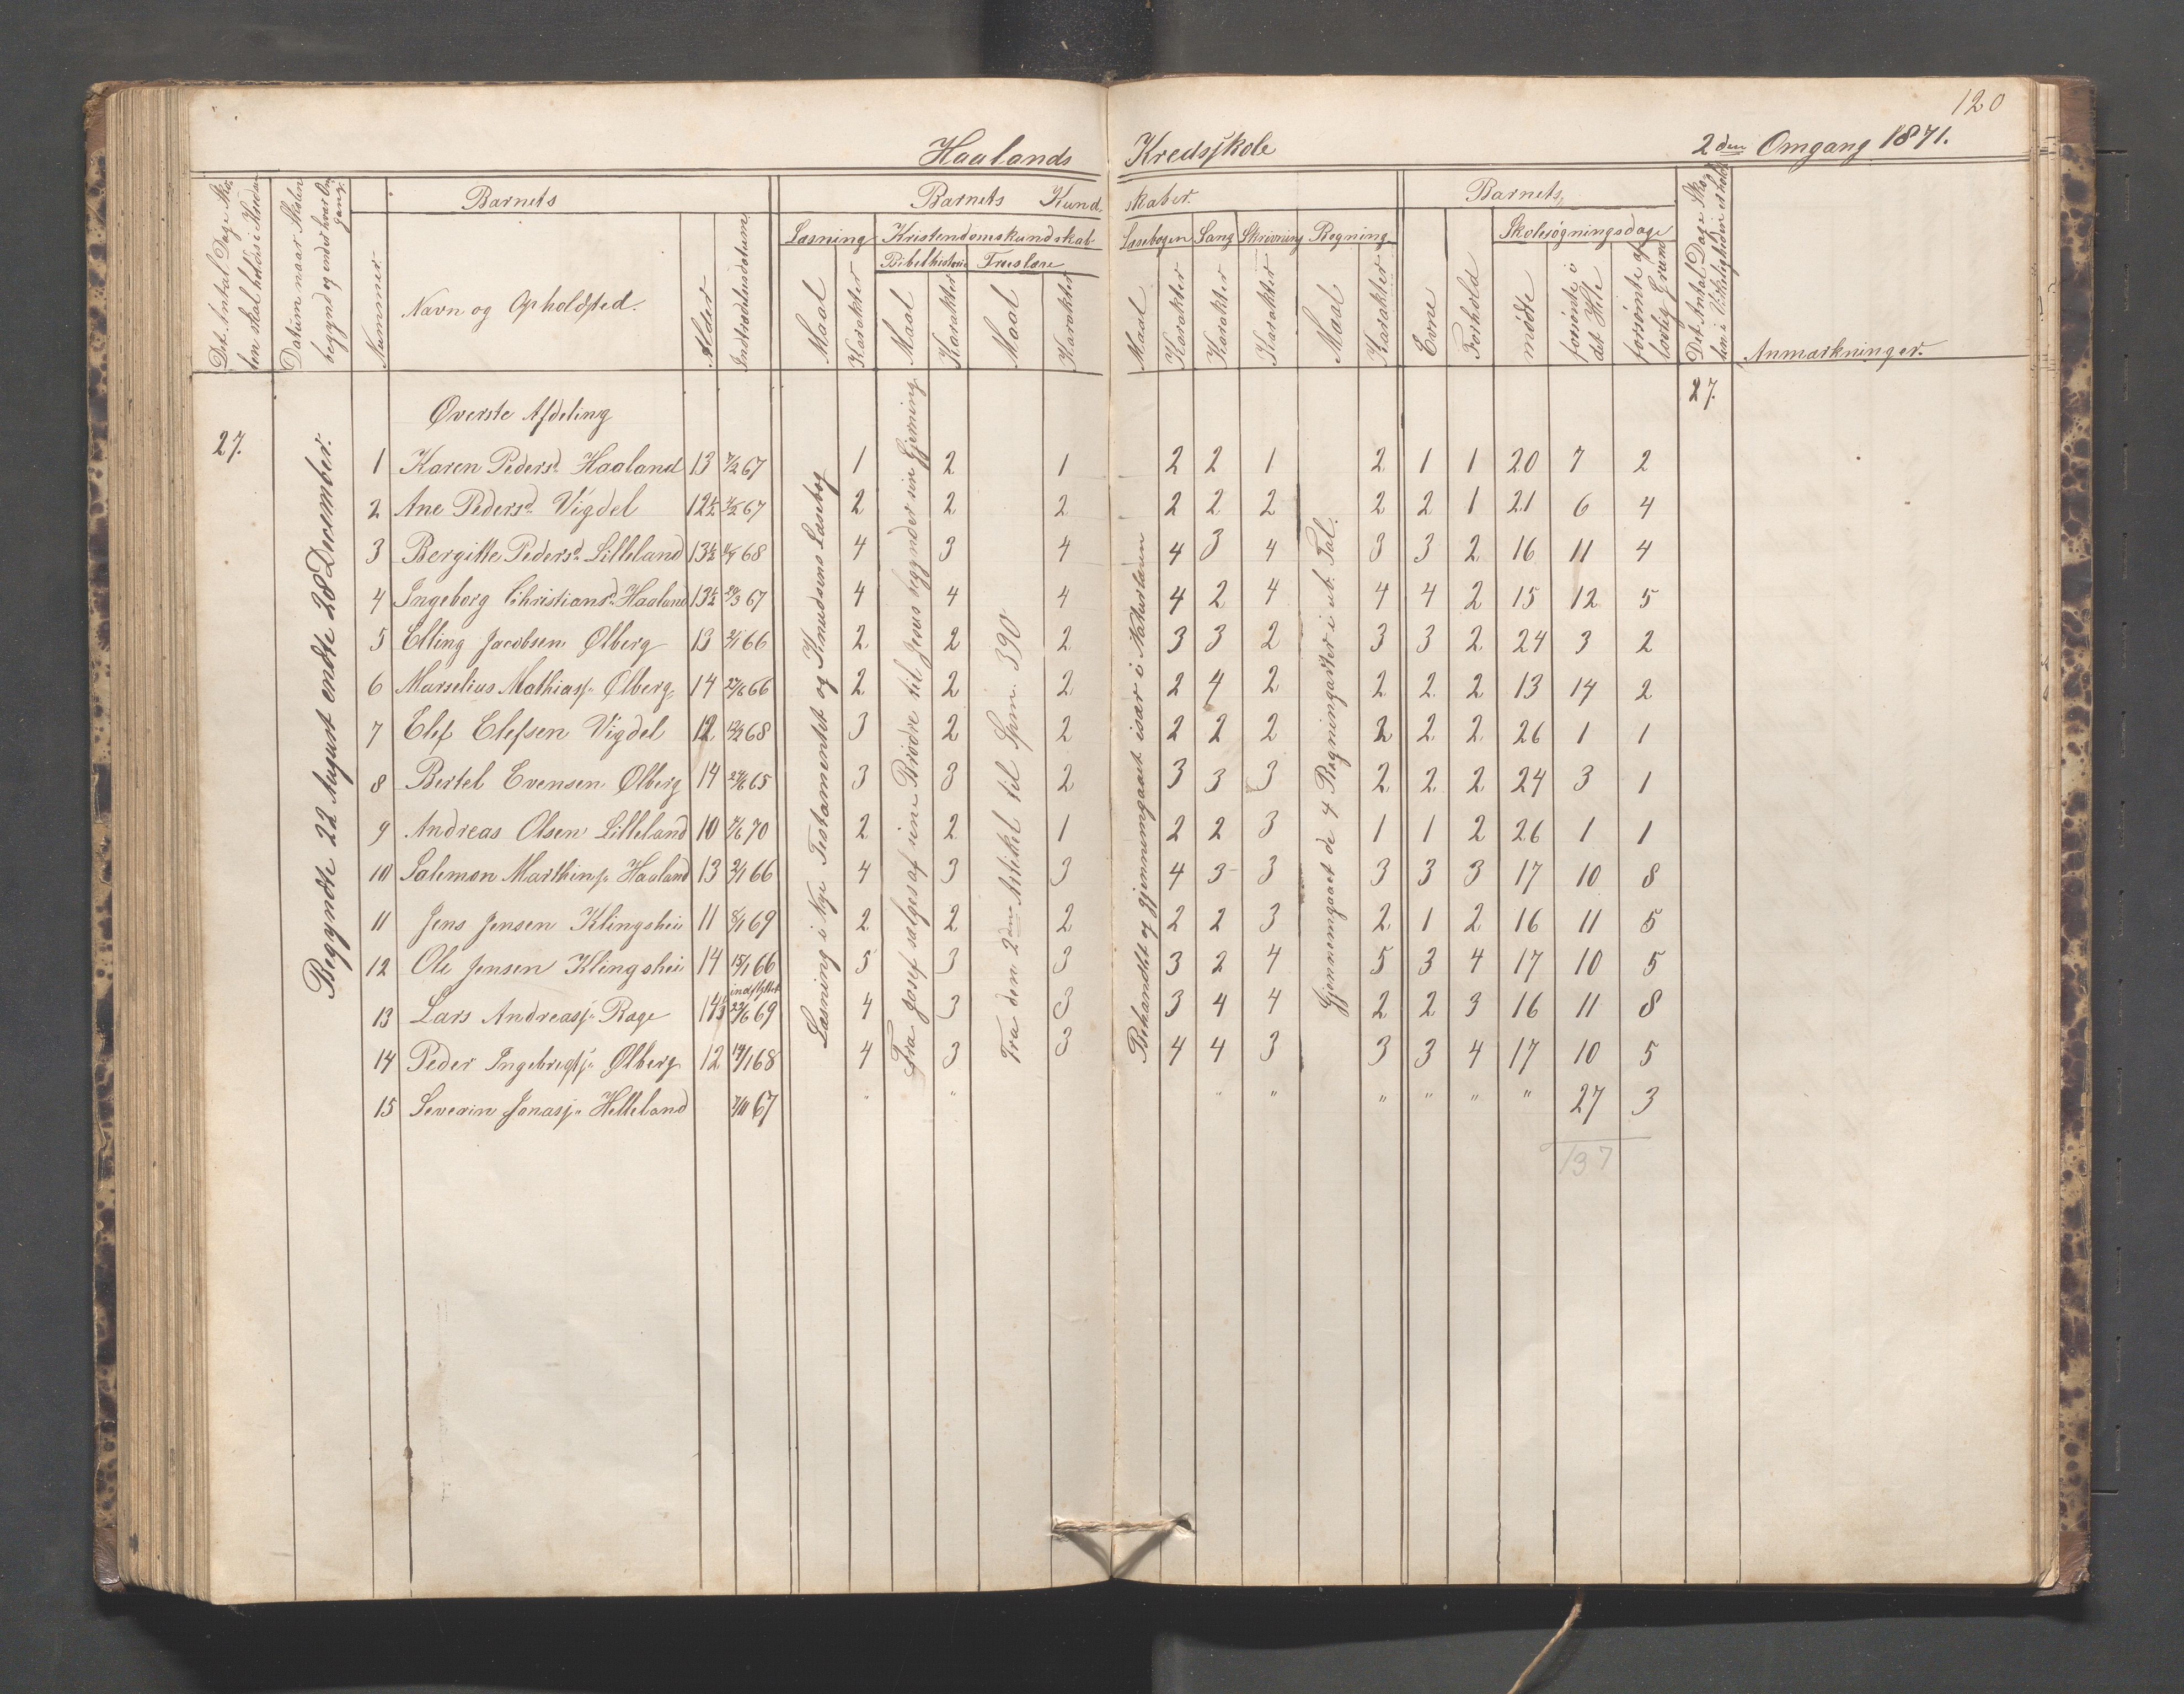 120
Haalands Kredsskole 2den Omgang 1871.
Det Antal Dage Skolen skal holdes i Kredsen
Datum naar Skolen begynd og ender hver Omgang.
Nummer.
Barnets
Navn og Opholdsted.
Alder
Indtrædelsesdatum
Barnets Kundskaber.
Læsning Kristendomskundskab. Læsebogen Sang Skrivning Regning
Bibelhistorie Troeslære
Maal Karakter Maal Karakter Maal Karakter Maal Karakter Karakter Karakter Maal Karakter
Barnets
Evne Forhold
Skolesøgningsdage
mødte
forsømte i det Hele
forsømte af lovlig Grund
Det Antal Dage Skolen i Virkeligheden er holdt
Anmærkninger.
27.
Begyndte 22 August endte 28 December.
27.
Øverste Afdeling
Læsning i Nye Testamentet og Knudsens Læsebog
Fra Josef sælges af sine Brødre til Jesus begynder sin Gjerning
Fra den 2den Artikel til Spm. 390
Behandlet og gjennemgaaet især i Naturlæren
Gjennemgaaet de 4 Regningsarter i ub. Tal.
1 Karen Pedersd. Haaland 13 7/2 67 1 2 1 2 2 1 2 1 1 20 7 2
2 Ane Pedersd. Vigdel 12½ 67 2 2 2 2 2 2 2 2 1 21 6 4
3 Bergitte Pedersd. Lilleland 13½ 68 4 3 4 4 3 4 3 3 2 16 11 4
4 Ingeborg Christiansd. Haaland 13½ 67 4 4 4 4 2 4 4 4 2 15 12 5
5 Elling Jacobsen Ølberg 13 2/1 66 2 2 2 3 3 2 3 3 2 24 3 2
6 Marselius Mathiass. Ølberg 14 66 2 2 2 2 4 2 2 2 2 13 14 2
7 Elef Elefsen Vigdel 12 68 3 2 2 2 2 2 2 2 2 26 1 1
8 Bertel Evensen Ølberg 14 65 3 3 2 3 3 3 2 2 2 24 3 1
9 Andreas Olsen Lilleland 10 7/6 70 2 2 1 2 2 3 1 1 2 26 1 1
10 Salemon Marthins. Haaland 13 2/1 66 4 3 3 4 3 3 3 3 3 17 10 8
11 Jens Jensen Klingshei 11 69 2 2 2 2 2 3 2 1 2 16 11 5
12 Ole Jensen Klingshei 14 15/1 66 5 3 3 3 2 4 5 3 4 17 10 5
indflyttet
13 Lars Andreass. Rage 69 4 3 3 3 4 4 2 2 3 16 11 8
14 Peder Ingebregts. Ølberg 12 14/1 68 4 3 3 4 4 3 3 3 4 17 10 5
15 Severin Jonass. Helleland 67 " " " " " " " " 27 3
137